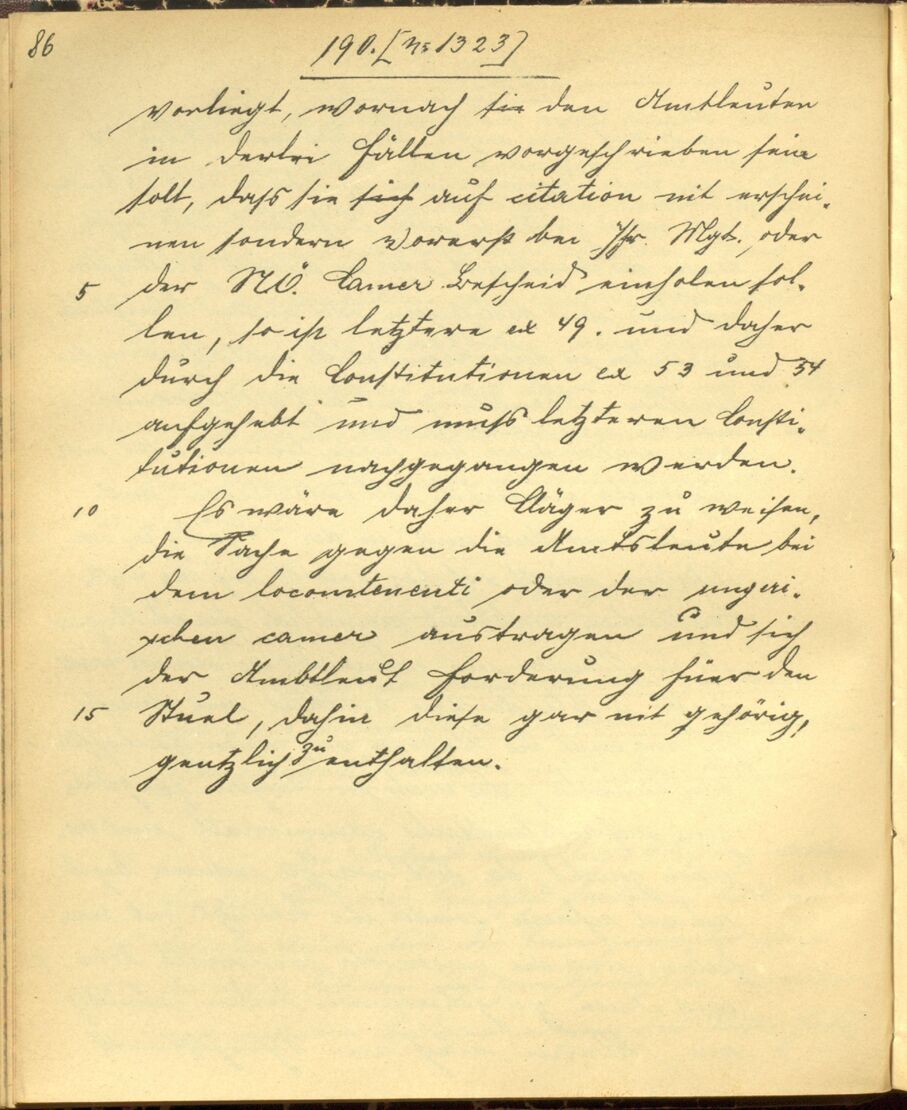 86
190. [Nr 1323]
vorliegt, wornach sie den Amtleuten
in derlei Fällen vorgeschrieben sein
solt, dass sie sich auf citation nit erschei-
nen sondern vorerst bei Ihr. Mgt. oder
5 der NÖ. Camer Bescheid einholen sol-
len, so ist letztere ex 49. und daher
durch die Constitutionen ex 53 und 54
aufgehebt und muss letzteren Consti-
tutionen nachgegangen werden.
10 Es wäre daher Cläger zu weisen,
die Sache gegen die Amtsleute bei
dem locomtenenti oder der ungeri-
schen camer austragen und sich
der Ambtleut forderung füer den
15 Stuel, dahin diese gar nit gehörig,
gentzlich zu enthalten.